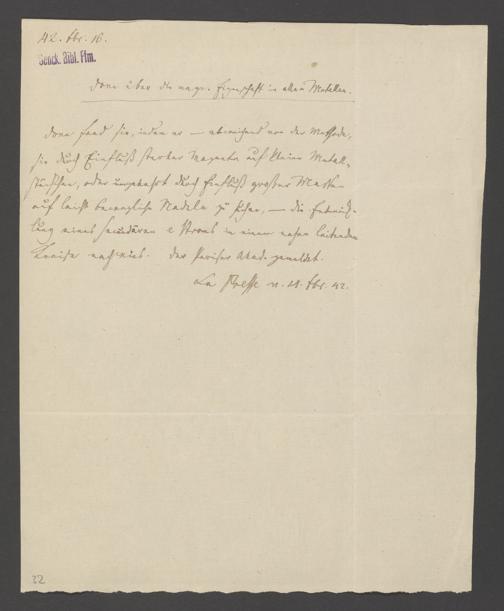 42. Fbr. 16.
Senck. Bibl. Ffm.
Dove über die magn. Eigenschaft in allen Metallen.
Dove fand sie, indem er — abweichend von der Methode,
sie durch Einfluß starker Magnete auf kleine Metall-
stückchen, oder umgekehrt durch Einfluß großer Massen
auf leicht bewegliche Nadeln zu suchen, — die Entwick-
lung eines secundären e Stroms in einem nahen leitenden
Kreise nachwies. Der Pariser Akad. gemeldet.
La Presse v. Fbr. 42.
32